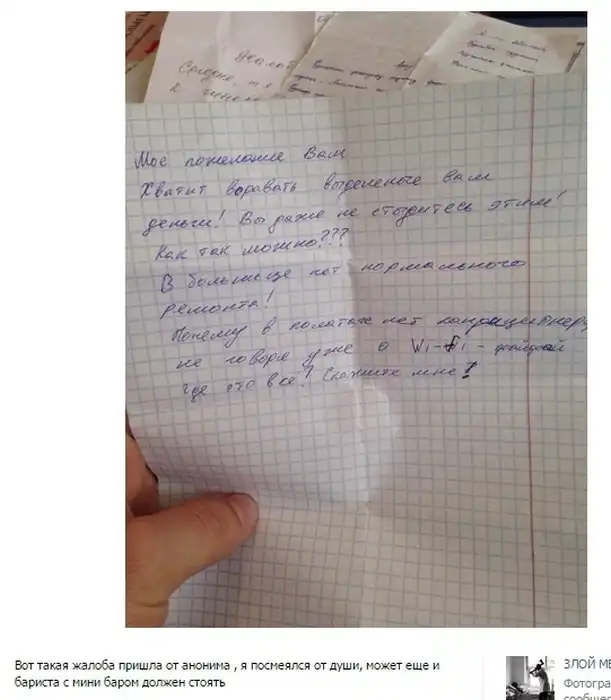 Мое пожелание Вам
Хватит воравать выделеные вам
деньги! Вы даже не стыдитесь этим!
Как так можно???
В больнице нет нормального
ремонта!
Почему в полатах нет кандиционеры
не говоря уже о Wi-fi - файфай
где это все? Скажите мне!
Вот такая жалоба пришла от анонима , я посмеялся от души, может еще и
бариста с мини баром должен стоять
ЗЛОЙ МЕ
Фотогра
сообщес